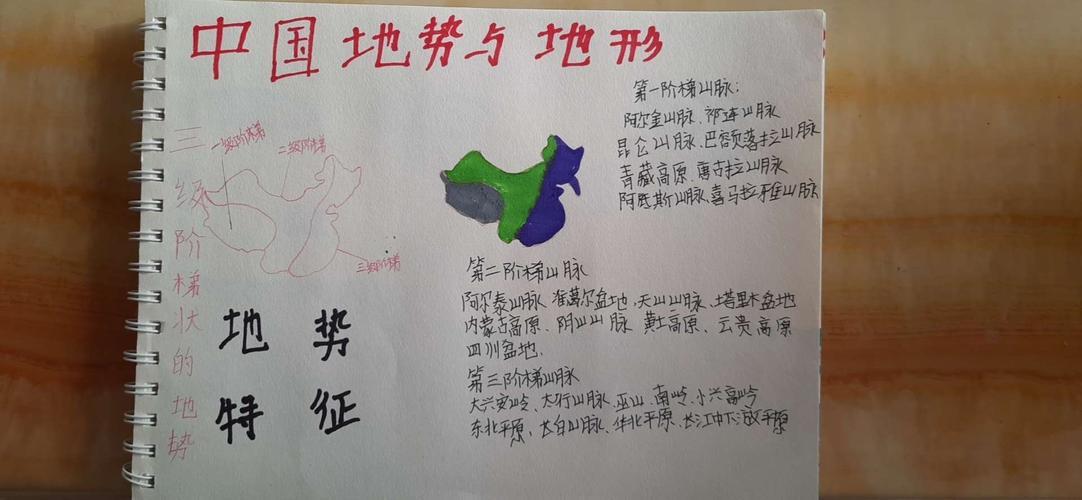 中国地势与地形
三级阶梯状的地势
一级阶梯
二级阶梯
三级阶梯
地势
特征
第一阶梯山脉：
阿尔金山脉、祁连山脉
昆仑山脉、巴容颜落拉山脉
青藏高原、唐古拉山脉
冈底斯山脉、喜马拉雅山脉
第二阶梯山脉
阿尔泰山脉、准葛尔盆地、天山山脉、塔里木盆地
内蒙古高原、阴山山脉、黄土高原、云贵高原
四川盆地、
第三阶梯山脉
大兴安岭、太行山脉、巫山、南岭、小兴高岭
东北平原、长白山脉、华北平原、长江中下游平原